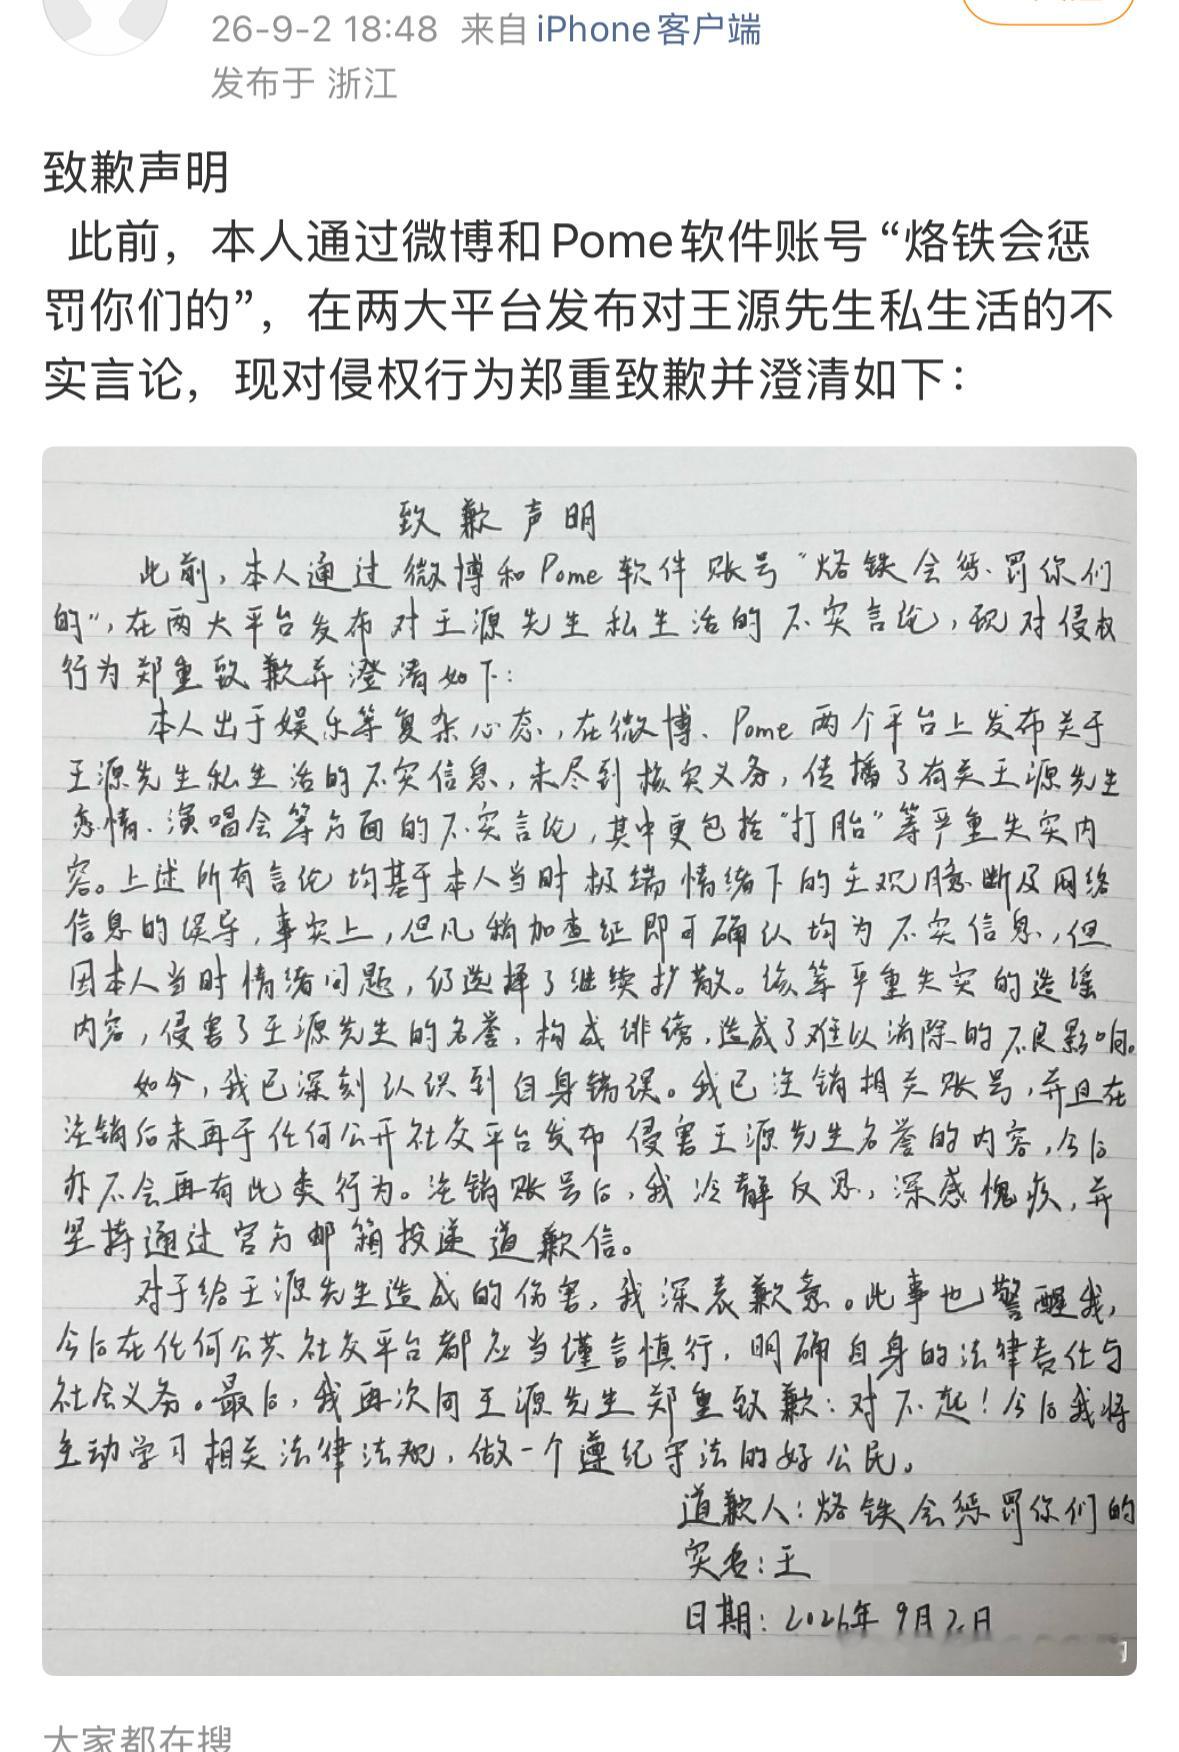 26-9-2 18:48 来自 iPhone客户端
发布于 浙江
致歉声明
此前，本人通过微博和Pome软件账号“烙铁会惩
罚你们的”，在两大平台发布对王源先生私生活的不
实言论，现对侵权行为郑重致歉并澄清如下：
致歉声明
此前，本人通过微博和Pome软件账号“烙铁会惩罚你们
的”，在两大平台发布对王源先生私生活的不实言论，现对侵权
行为郑重致歉并澄清如下：
本人出于娱乐等复杂心态，在微博、Pome两个平台上发布关于
王源先生私生活的不实信息，未尽到核实义务，传播了有关王源先生
恋情、演唱会等方面的不实言论，其中更包括“打胎”等严重失实内
容。上述所有言论均基于本人当时极端情绪下的主观臆断及网络
信息的误导，事实上，但凡稍加查证即可确认均为不实信息，但
因本人当时情绪问题，仍选择了继续扩散。该等严重失实的造谣
内容，侵害了王源先生的名誉，构成诽谤，造成了难以消除的不良影响。
如今，我已深刻认识到自身错误。我已注销相关账号，并且在
注销后未再于任何公开社交平台发布侵害王源先生名誉的内容，今后
亦不会再有此类行为。注销账号后，我冷静反思，深感愧疚，并
坚持通过官方邮箱投递道歉信。
对于给王源先生造成的伤害，我深表歉意。此事也警醒我，
今后在任何公共社交平台都应当谨言慎行，明确自身的法律责任与
社会义务。最后，我再次向王源先生郑重致歉：对不起！今后我将
主动学习相关法律法规，做一个遵纪守法的好公民。
道歉人：烙铁会惩罚你们的
实名：王
日期：2026年9月2日
大家都在搜